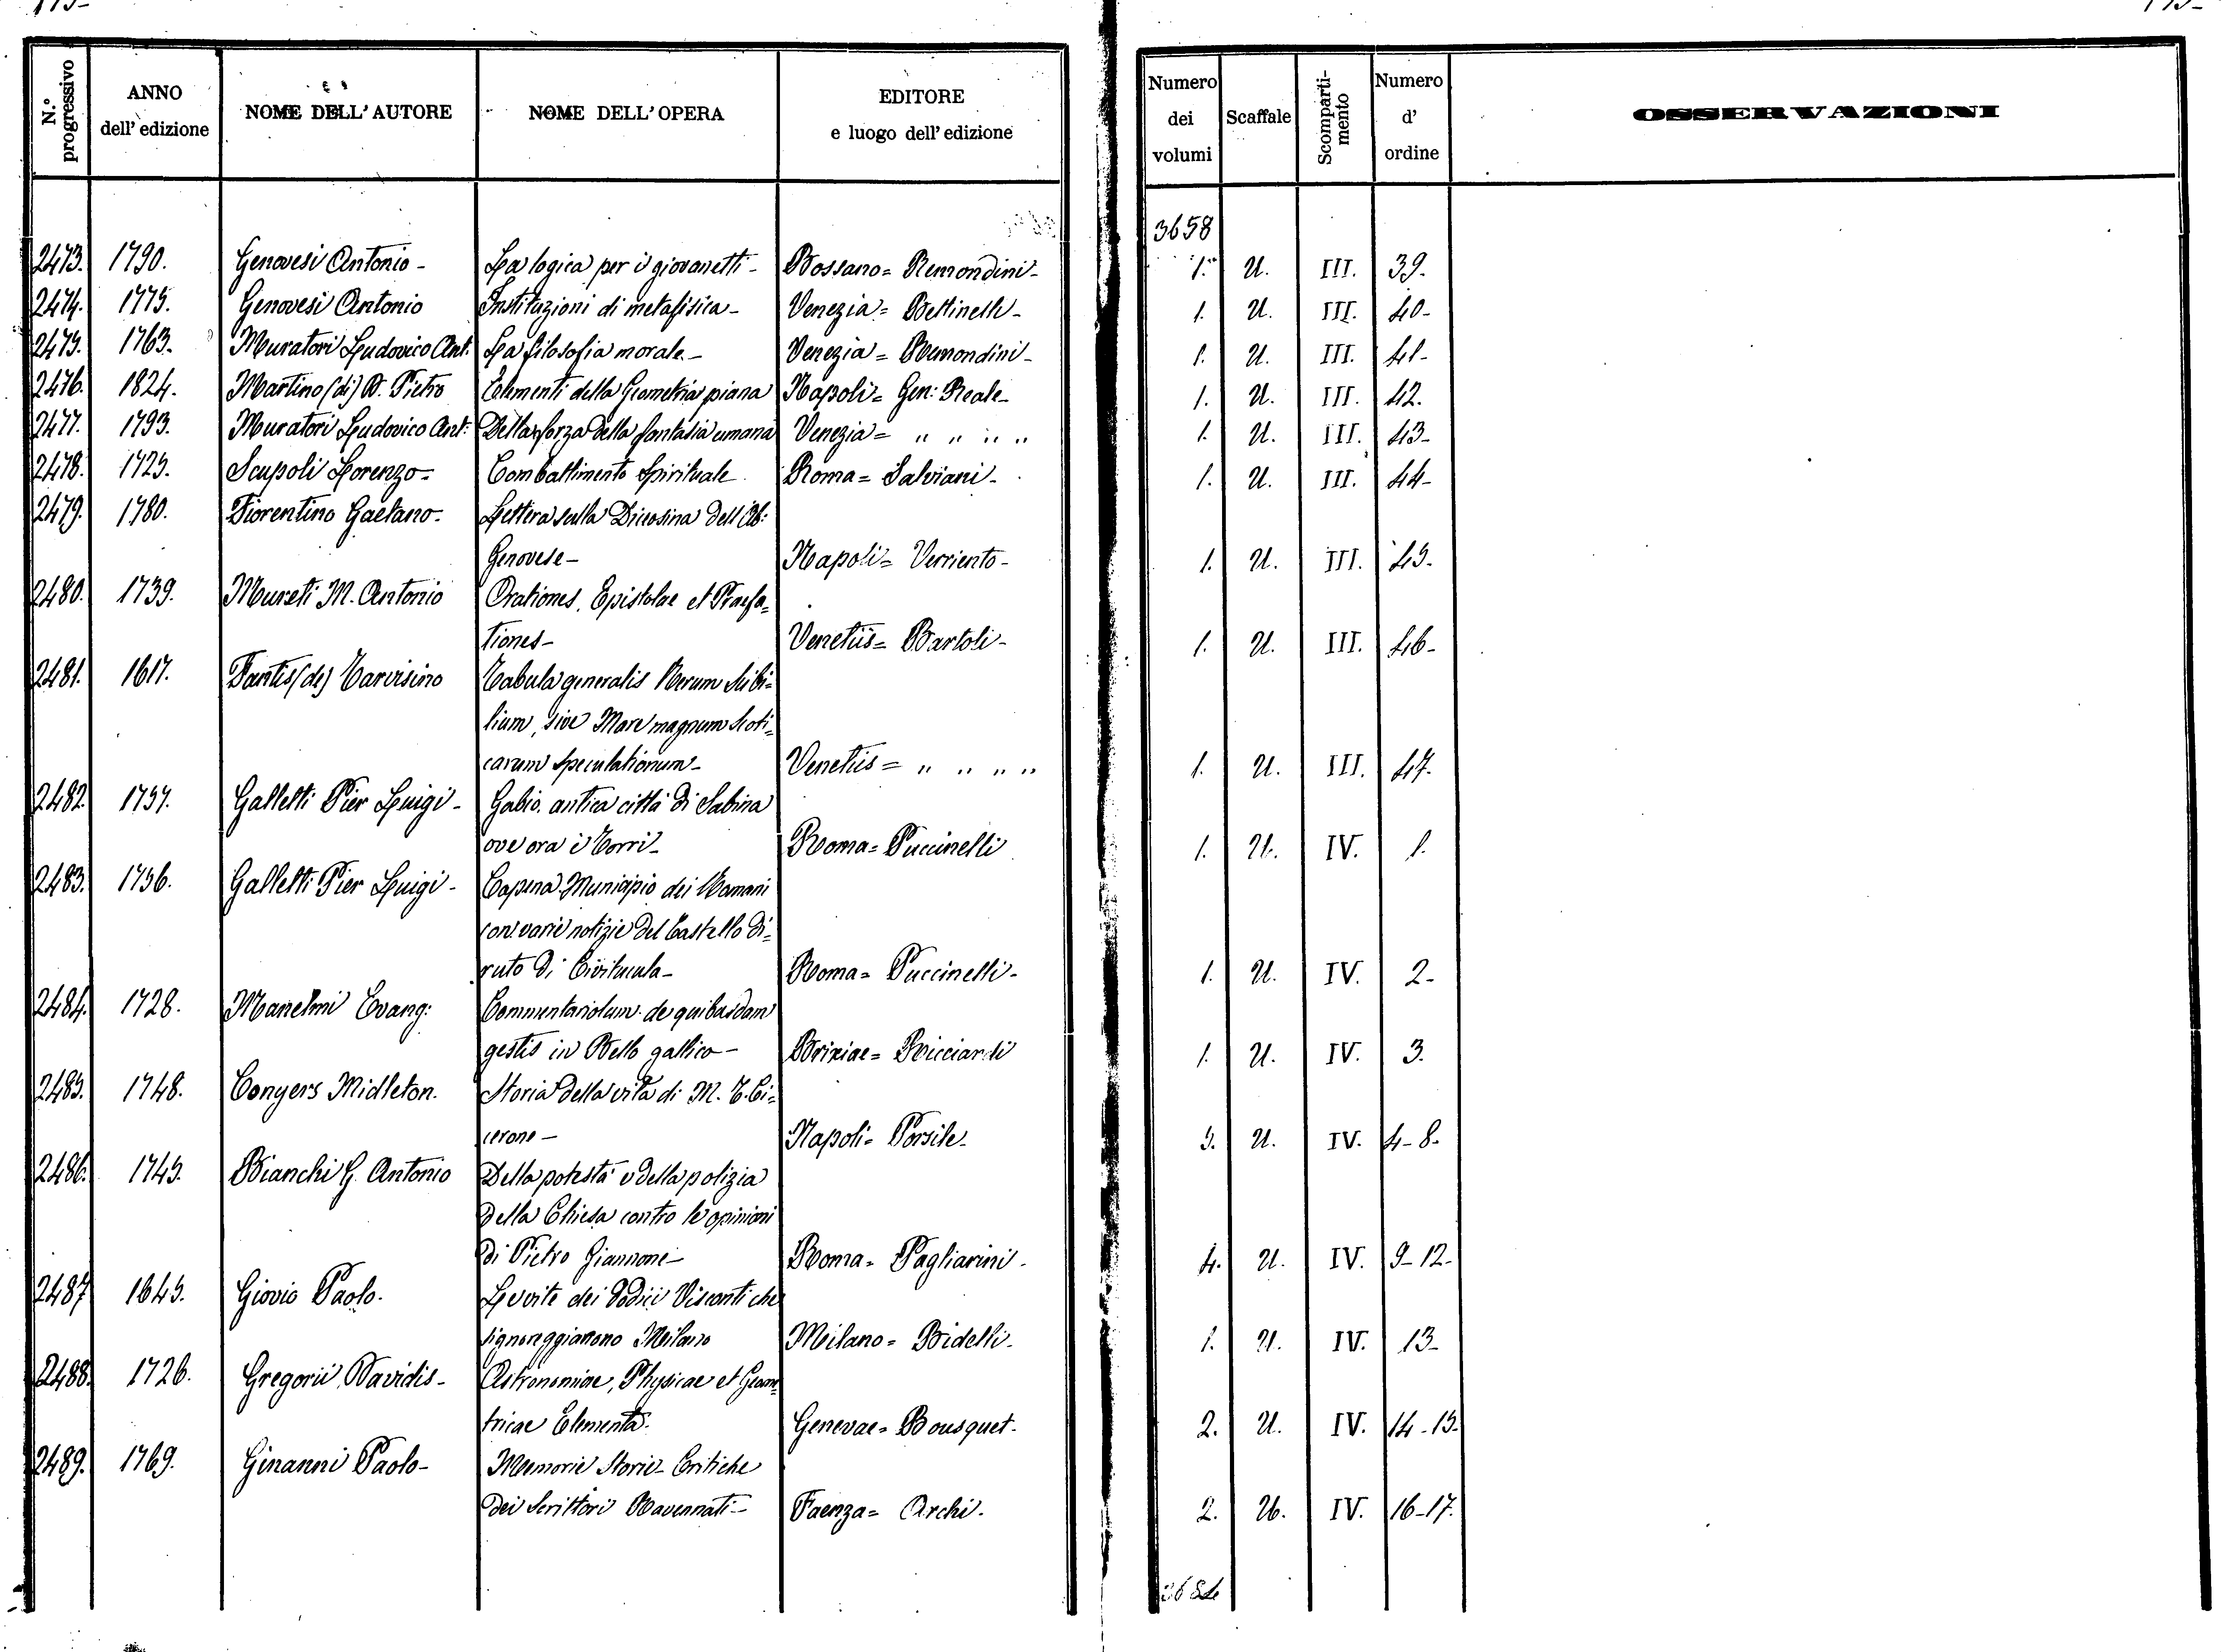 N.° progressivo
ANNO dell' edizione
NOME DELL' AUTORE
NOME DELL' OPERA
EDITORE e luogo dell' edizione
Numero dei volumi
Scaffale
Scomparti-mento
Numero d' ordine
OSSERVAZIONI
3658
2473. 1790. Genovesi Antonio - La logica per i giovanetti - Bossano = Remondini - 1. U. III. 39.
2474. 1775. Genovesi Antonio Instituzioni di metafisica - Venezia = Bettinelli - 1. U. III. 40-
2475. 1763. Muratori Ludovico Ant: La filosofia morale - Venezia = Remondini - 1. U. III. 41-
2476. 1824. Martino (di) D. Pietro Elementi della Geometria piana Napoli = Gen: Reale - 1. U. III. 42.
2477. 1793. Muratori Ludovico Ant: Della forza della fantasia umana Venezia = " " " " 1. U. III. 43-
2478. 1725. Scupoli Lorenzo = Combattimento Spirituale Roma = Salviani - 1. U. III. 44-
2479. 1780. Fiorentino Gaetano - Lettera sulla Diceosina dell'Ab:
Genovese - Napoli = Verriento - 1. U. III. 45.
2480. 1739. Mureti M. Antonio Orationes, Epistolae et Praefa=
tiones - Venetiis = Bartoli - 1. U. III. 46-
2481. 1617. Fantis (de) Tarvisino Tabula generalis Rerum Scibi=
lium, sive Mare magnum Scoti=
carum Speculationum - Venetiis = " " " " 1. U. III. 47.
2482. 1757. Galletti Pier Luigi - Gabio antica città di Sabina
ove ora è Torri - Roma = Puccinelli 1. U. IV. 1.
2483. 1756. Galletti Pier Luigi - Capena Municipio dei Romani
con varie notizie del Castello di=
ruto di Civitucula - Roma = Puccinelli - 1. U. IV. 2-
2484. 1728. Manelmi Evang: Commentariolum de quibusdam
gestis in Bello gallico - Brixiae = Ricciardi 1. U. IV. 3.
2485. 1748. Conyers Midleton. Storia della vita di M. T. Ci=
cerone - Napoli = Porsile - 5. U. IV. 4-8.
2486. 1745. Bianchi G. Antonio Della potestà e della polizia
della Chiesa contro le opinioni
di Pietro Giannone - Roma = Pagliarini - 4. U. IV. 9-12-
2487 1645. Giovio Paolo. Le vite dei dodici Visconti che
signoreggiarono Milano Milano = Bidelli - 1. U. IV. 13-
2488. 1726. Gregorii Davidis - Astronomiae, Physicae et Geome=
tricae Elementa. Genevae = Bousquet. 2. U. IV. 14-15.
2489. 1769. Ginanni Paolo - Memorie Storic- Critiche
dei Scrittori Ravennati - Faenza = Archi. 2. U. IV. 16-17.
3684